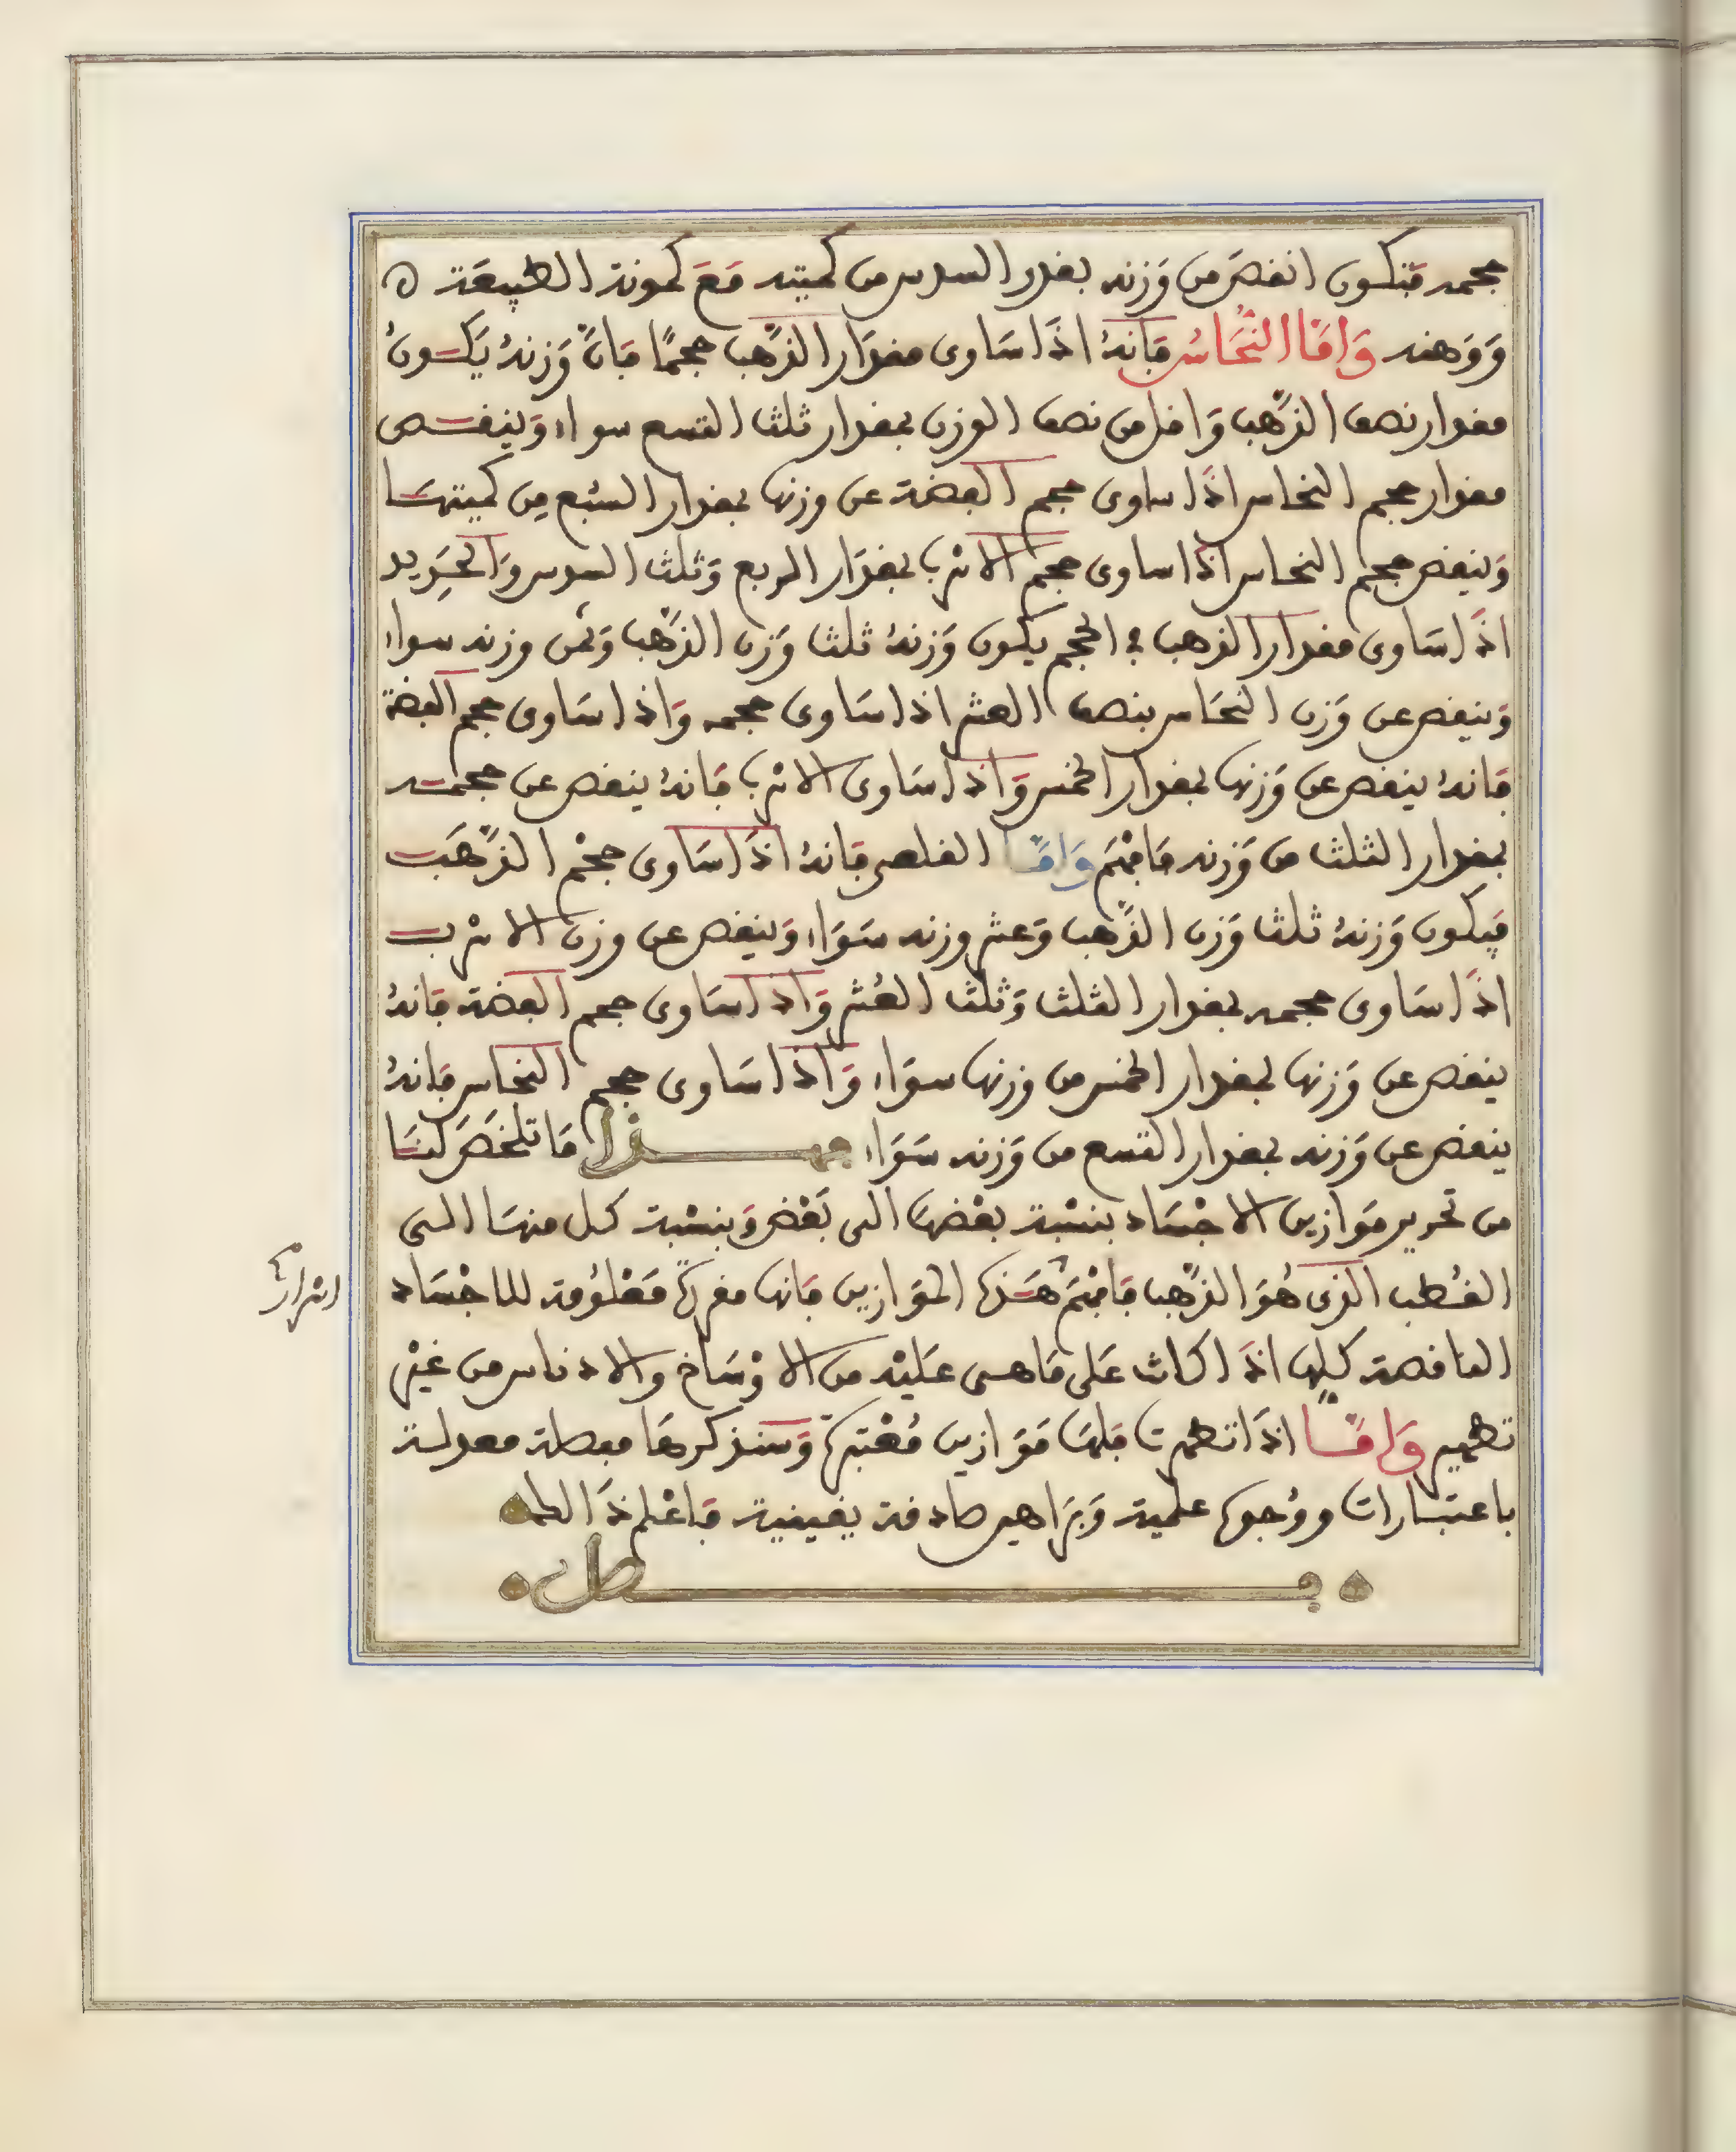 حجمه فتكون انقص من وزنه بقدر السدس من كميته مع كمونة الطبيعة ه
ووهنه وَامَّا النُّحَاسُ فَانهُ اذَا سَاوى مقدَار الذَّهب حجمًا فَانَّ وَزنهُ يَكُونُ
مقدار نصف الذَّهب وَاقل من نصف الوزن بمقدار ثلث التسع سواء وَينقص
مقدار حجم النحاس اذَا ساوى حجم الفضة عن وزنها بمقدار السُّبع مِن كميتهَا
وَينقص حجم النحاس اذا ساوى حجم الاسْرب بمقدَار الربع وَثلث السدس وَالحَدِيد
اذَا سَاوى مقدار الذهب في الحجم يكون وَزنهُ ثلثا وَزن الذَّهب وَثمن وزنه سواء
وَينقص عن وَزن النحَاس بنصف العشر اذا سَاوى حجمه وَاذا سَاوى حجم الفضة
فَانهُ ينقص عن وَزنها بمقدار الخمس وَاذا سَاوى الاسْرب فَانهُ ينقص عن حجمه
بمقدار الثلث من وَزنه فافهَم وَامَّا القلعى فَانهُ اذَا سَاوى حجْم الذَّهَب
فيكون وَزنهُ ثلثا وَزن الذَّهب وَعشر وزنه سَوَاء وَينقص عن وزن الاسْرب
اذَا سَاوى حجمه بمقدار الثلث وَثلث العُشر وَاذا سَاوى حجم الفضة فَانهُ
ينقص عن وَزنها بمقدار الخمس من وزنها سوَاء وَاذا سَاوى حجم النحاس فَانهُ
ينقص عن وَزنه بمقدار التسع من وَزنه سَوَاء فهذا مَا تلخصَ لنَا
من تحرير مَوَازين الاجْسَاد بنسْبة بعْضهَا الى بَعْض وَبنسْبة كل منهَا الى
القُطب الذى هُوَ الذَّهب فَافهَم هَذه الموَازين فَانها مقررة مَعْلُومَة للاجْسَاد
الناقصة كلها اذَا كانت عَلى مَا هى عَليْه من الاوْسَاخ والادناس من غيْر
تطهير وَامَّا اذَا تطهرت فلهَا مَوَازين مُعْتبرة وَسنذكرهَا مفصلة معدلة
باعتبارات ووُجوه علمية وَبَرَاهين صادقة يقينية فَاعْلم ذَالك
فصل